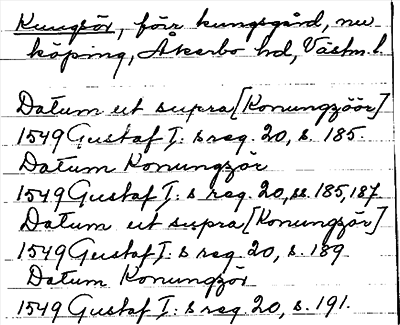 Kungsör, förr kungsgård, nu
köping, Åkerbo hd, Västm. l.
Datum ut supra [Konungzöör]
1549 Gustaf I: s reg. 20, s. 185
Datum Konungzör
1549 Gustaf I: s reg. 20, ss. 185, 187
Datum ut supra [Konungzör]
1549 Gustaf I: s reg. 20, s. 189
Datum Konungzör
1549 Gustaf I: s reg. 20, s. 191.